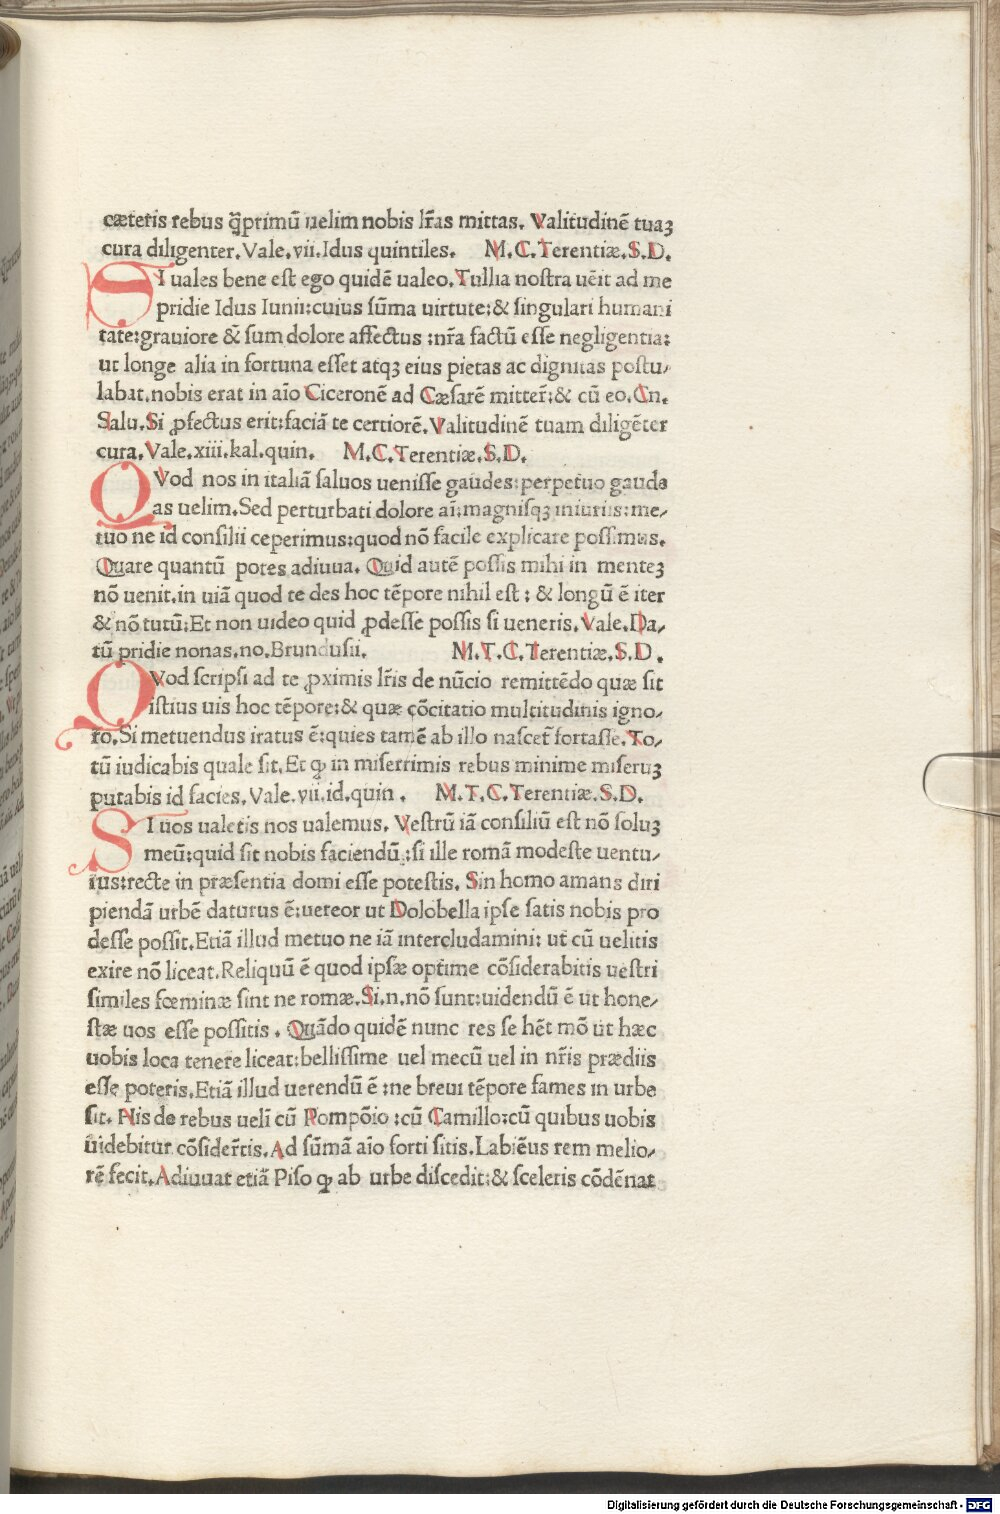 cæteris rebus q̃primū uelim nobis lr̃as mittas. Valitudinē tuaꝫ
cura diligenter. Vale. vii. Idus quintiles. M. C. Terentiæ. S. D.
SI uales bene est ego quidē ualeo. Tullia nostra uēit ad me
pridie Idus Iunii: cuius sūma uirtute: & singulari humani
tate: grauiore & sum dolore affectus: nr̃a factū esse negligentia:
ut longe alia in fortuna esset atqꝫ eius pietas ac dignitas postu/
labat. nobis erat in aĩo Ciceronē ad Cæsarē mitter̃: & cū eo. Cn.
Salu. Si ꝓfectus erit: faciā te certiorē. Valitudinē tuam diligēter
cura. Vale. xiii. kal. quin. M. C. Terentiæ. S. D.
QVod nos in italiā saluos uenisse gaudes: perpetuo gaude
as uelim. Sed perturbati dolore aĩ: magnisqꝫ iniuriis: me/
tuo ne id consilii ceperimus: quod nō facile explicare possimus.
Quare quantū potes adiuua. Quid autē possis mihi in menteꝫ
nō uenit. in uiā quod te des hoc tēpore nihil est: & longū ē iter
& nō tutū: Et non uideo quid ꝓdesse possis si ueneris. Vale. Da/
tū pridie nonas. no. Brundusii. M. T. C. Terentiæ. S. D.
QVod scripsi ad te ꝓximis lr̃is de nūcio remittēdo quæ sit
istius uis hoc tēpore: & quæ cōcitatio multitudinis igno/
ro. Si metuendus iratus ē: quies tamē ab illo nascet̃ fortasse. To/
tū iudicabis quale sit. Et ꝙ in miserrimis rebus minime miseruꝫ
putabis id facies. Vale. vii. id. quin. M. T. C. Terentiæ. S. D.
SI uos ualetis nos ualemus. Vestrū iā consiliū est nō soluꝫ
meū: quid sit nobis faciendū: si ille romā modeste uentu/
rus: recte in præsentia domi esse potestis. Sin homo amans diri
piendā urbē daturus ē: uereor ut Dolobella ipse satis nobis pro
desse possit. Etiā illud metuo ne iā intercludamini: ut cū uelitis
exire nō liceat. Reliquū ē quod ipsæ optime cōsiderabitis uestri
similes fœminæ sint ne romæ. Si. n. nō sunt: uidendū ē ut hone/
stæ uos esse possitis. Quādo quidē nunc res se hēt mō ut hæc
uobis loca tenere liceat: bellissime uel mecū uel in nr̃is prædiis
esse poteris. Etiā illud uerendū ē: ne breui tēpore fames in urbe
sit. His de rebus ueli cū Pompōio: cū Camillo: cū quibus uobis
uidebitur cōsider̃tis. Ad sūmā aĩo forti sitis. Labiēus rem melio/
rē fecit. Adiuuat etiā Piso ꝙ ab urbe discedit: & sceleris cōdēnat
Digitalisierung gefördert durch die Deutsche Forschungsgemeinschaft - DFG